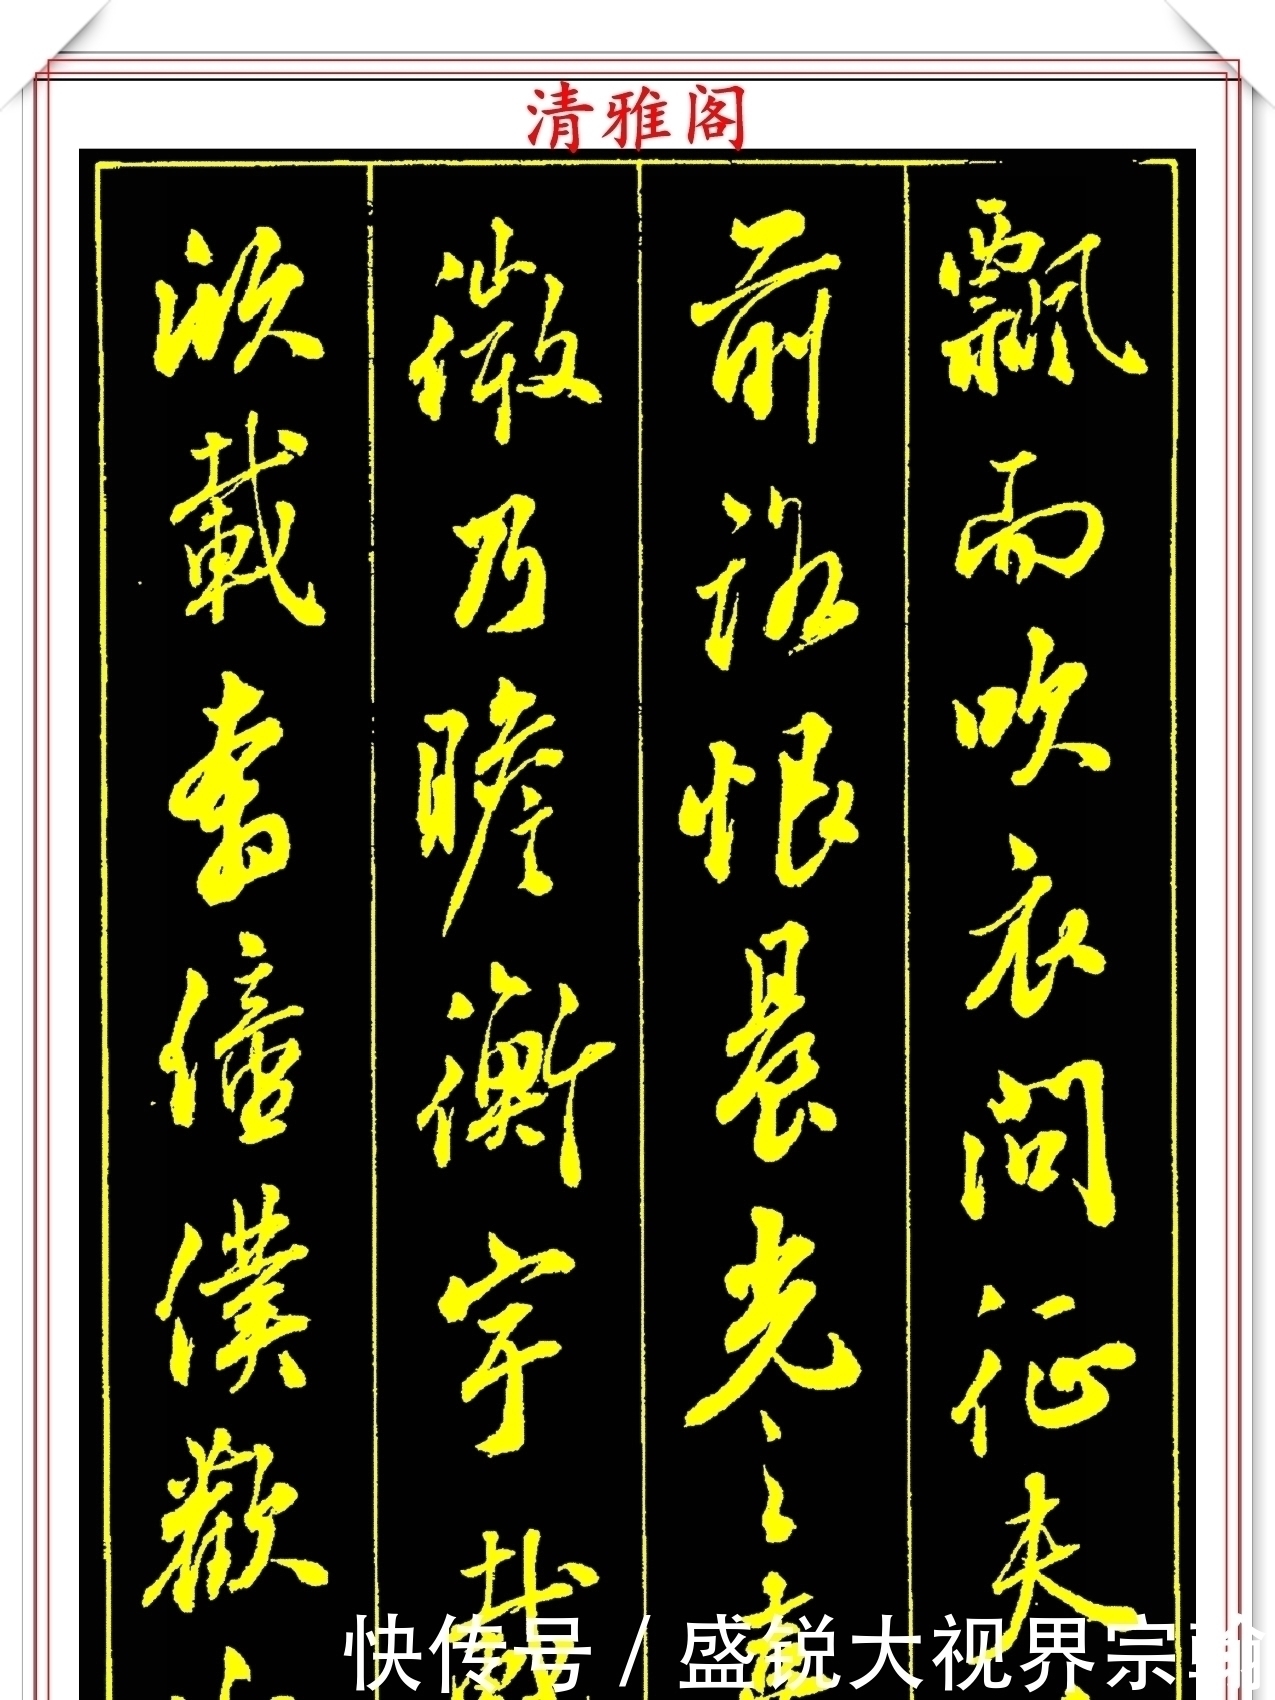 清雅阁
飘而吹衣问征夫
前路恨晨光之熹
微乃瞻衡宇載
欣載奔僮僕歡
快传号 / 盛锐大视界宗翰